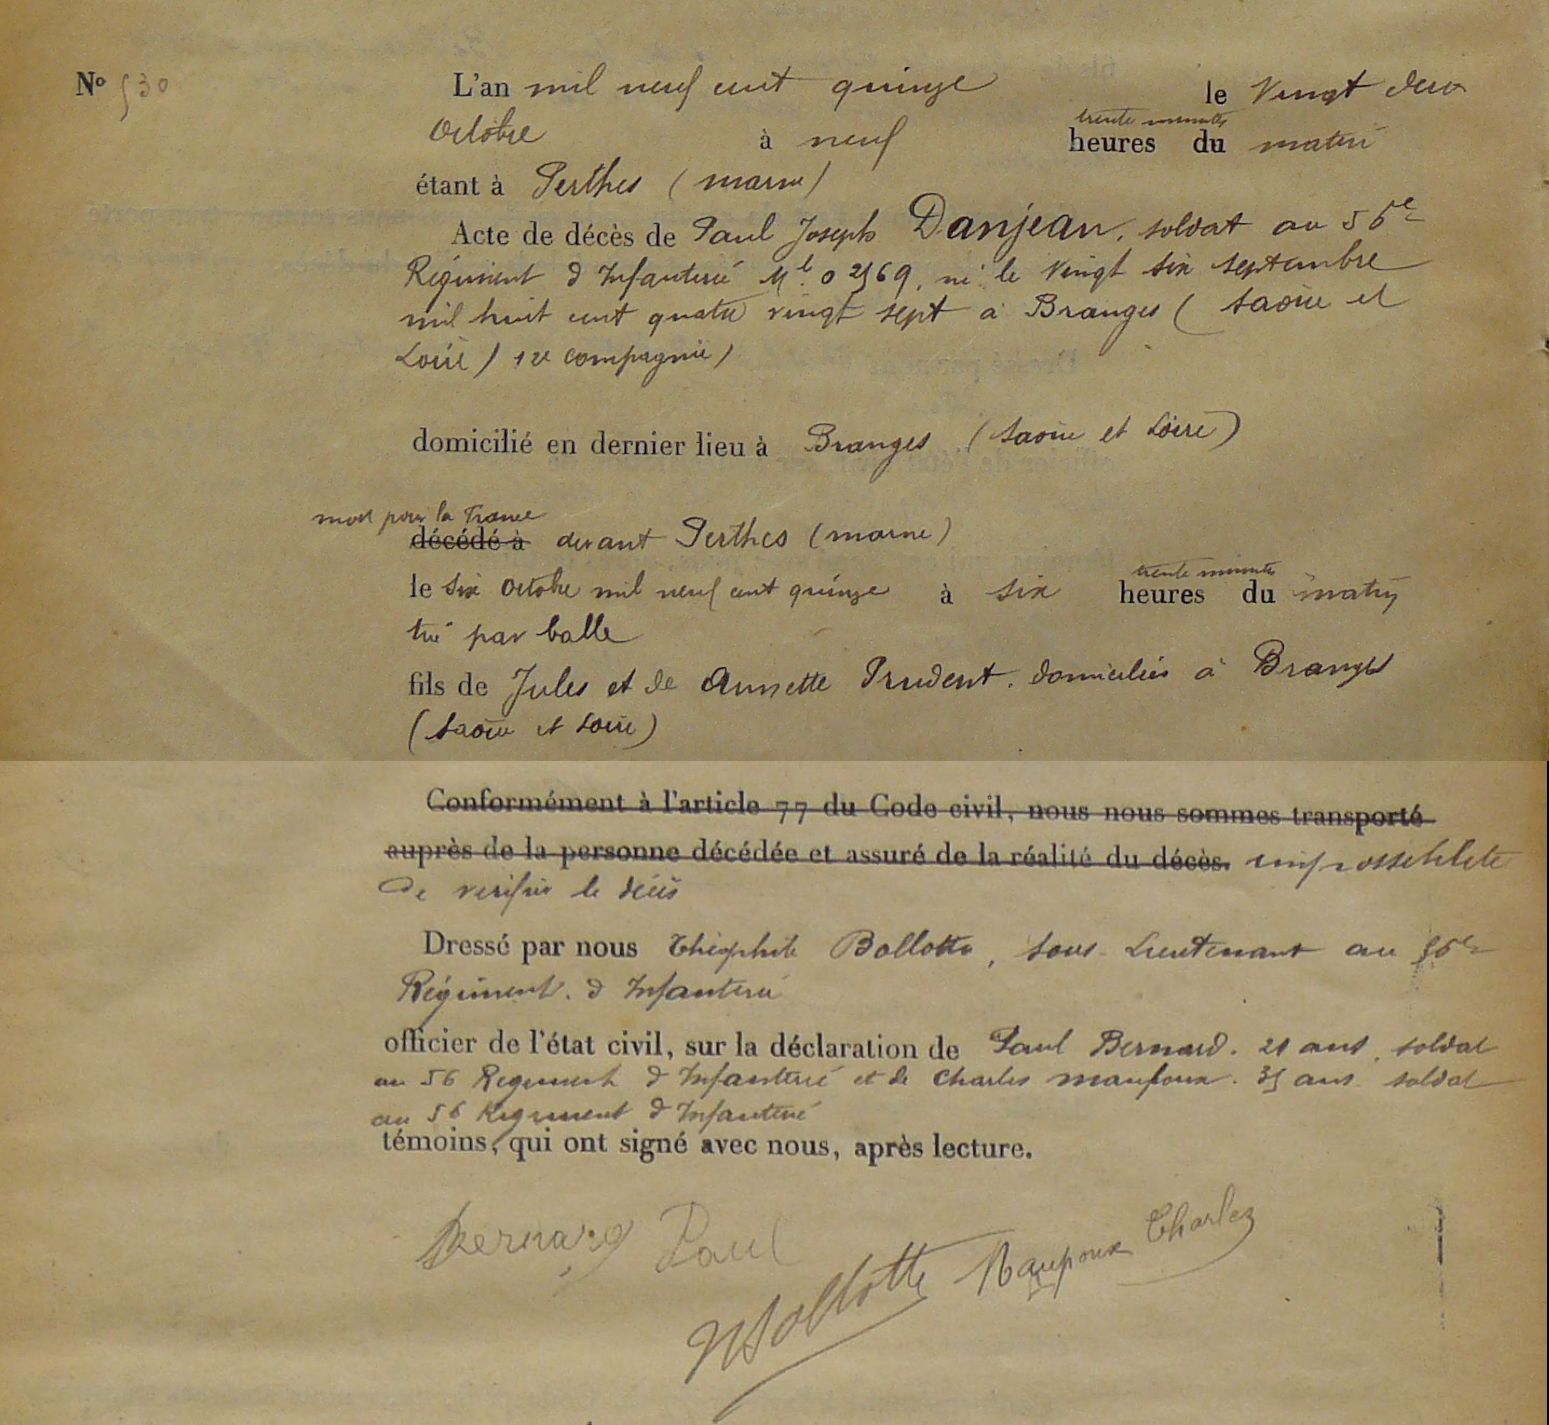 Nº 530
L'an mil neuf cent quinze le vingt deux
trente minutes
Octobre à neuf heures du matin
étant à Perthes (marne)
Acte de décès de Paul Joseph Danjean, soldat au 56e
Régiment d'Infanterie Mle 02569, né le vingt six septembre
mil huit cent quatre vingt sept à Branges (Saône et
Loire) 12e compagnie)
domicilié en dernier lieu à Branges (Saône et Loire)
mort pour la France
décédé à devant Perthes (marne)
trente minutes
le six Octobre mil neuf cent quinze à six heures du matin
tué par balle
fils de Jules et de Annette Prudent. domiciliés à Branges
(Saône et Loire)
Conformément à l'article 77 du Code civil, nous nous sommes transporté
auprès de la personne décédée et assuré de la réalité du décès. impossibilité
de verifier le décès
Dressé par nous Théophile Bollotte, Sous-Lieutenant au 56e
Régiment d'Infanterie
officier de l'état civil, sur la déclaration de Paul Bernard. 21 ans, soldat
au 56 Regiment d'Infanterie et de Charles maupoux. 35 ans soldat
au 56 Regiment d'Infanterie
témoins, qui ont signé avec nous, après lecture.
Bernard Paul
Bollotte Maupoux Charles